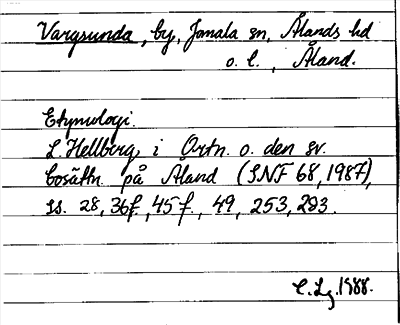 Vargsunda, by, Jomala sn, Ålands hd
o. l., Åland.
Etymologi.
L Hellberg i Ortn. o. den sv.
bosättn. på Åland (SNF 68, 1987),
ss. 28, 36f., 45f., 49, 253, 293.
C. Lg. 1988.